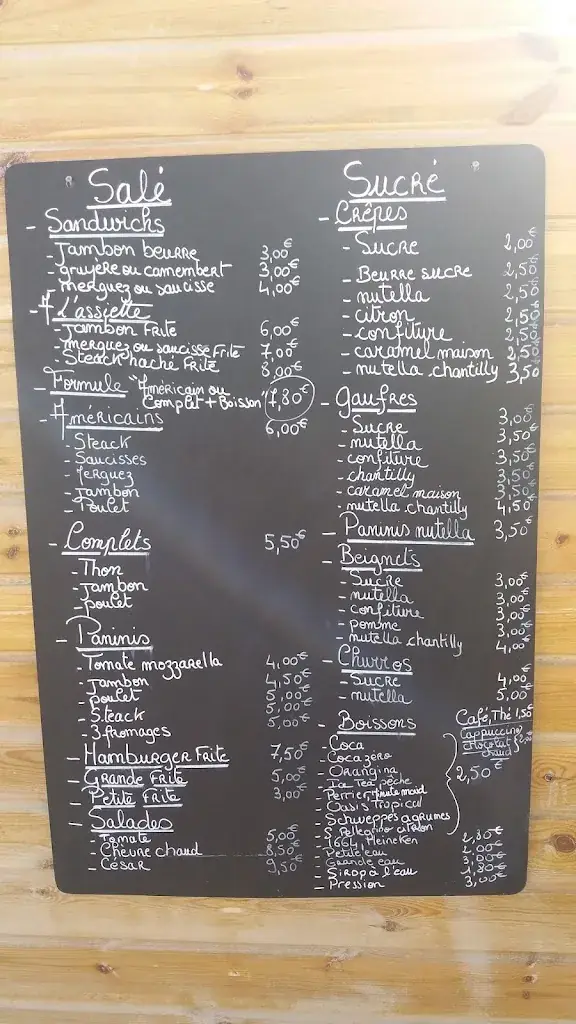 Salé
- Sandwichs
- Jambon beurre 3,00€
- gruyère ou camembert 3,00€
- merguez ou saucisse 4,00€
- A L'assiette
- Jambon Frite 6,00€
- merguez ou saucisse Frite 7,00€
- Steack haché Frite 8,00€
- Formule "Américain ou Complet + Boisson" 7,80€
- Américains 6,00€
- Steack
- Saucisses
- Merguez
- Jambon
- Poulet
- Complets 5,50€
- Thon
- Jambon
- poulet
- Paninis
- Tomate mozzarella 4,00€
- Jambon 4,50€
- poulet 5,00€
- Steack 5,00€
- 3 fromages 5,00€
- Hamburger Frite 7,50€
- Grande Frite 5,00€
- Petite Frite 3,00€
- Salades
- Tomate 5,00€
- Chèvre chaud 8,50€
- César 9,50€
Sucré
- Crêpes
- Sucre 2,00€
- Beurre sucre 2,50€
- nutella 2,50€
- citron 2,50€
- confiture 2,50€
- caramel maison 2,50€
- nutella chantilly 3,50
- Gaufres
- Sucre 3,00€
- nutella 3,50€
- confiture 3,50€
- chantilly 3,50€
- caramel maison 3,50€
- nutella chantilly 4,50€
- Paninis nutella 3,50€
- Beignets
- Sucre 3,00€
- nutella 3,00€
- confiture 3,00€
- pomme 3,00€
- nutella chantilly 4,00€
- Churros
- Sucre 4,00€
- nutella 5,00€
- Boissons
Café, Thé 1,50€
Cappuccino
chocolat chaud
- Coca
- Coca zéro
- Orangina
- Tea pêche
- Perrier, minute maid
- Oasis Tropical
- Schweppes agrumes
- S. Pellegrino citron
2,50€
- 1664, Heineken 2,80€
- Petite eau 2,00€
- Grande eau 3,00€
- Sirop à l'eau 1,80€
- Pression 3,00€